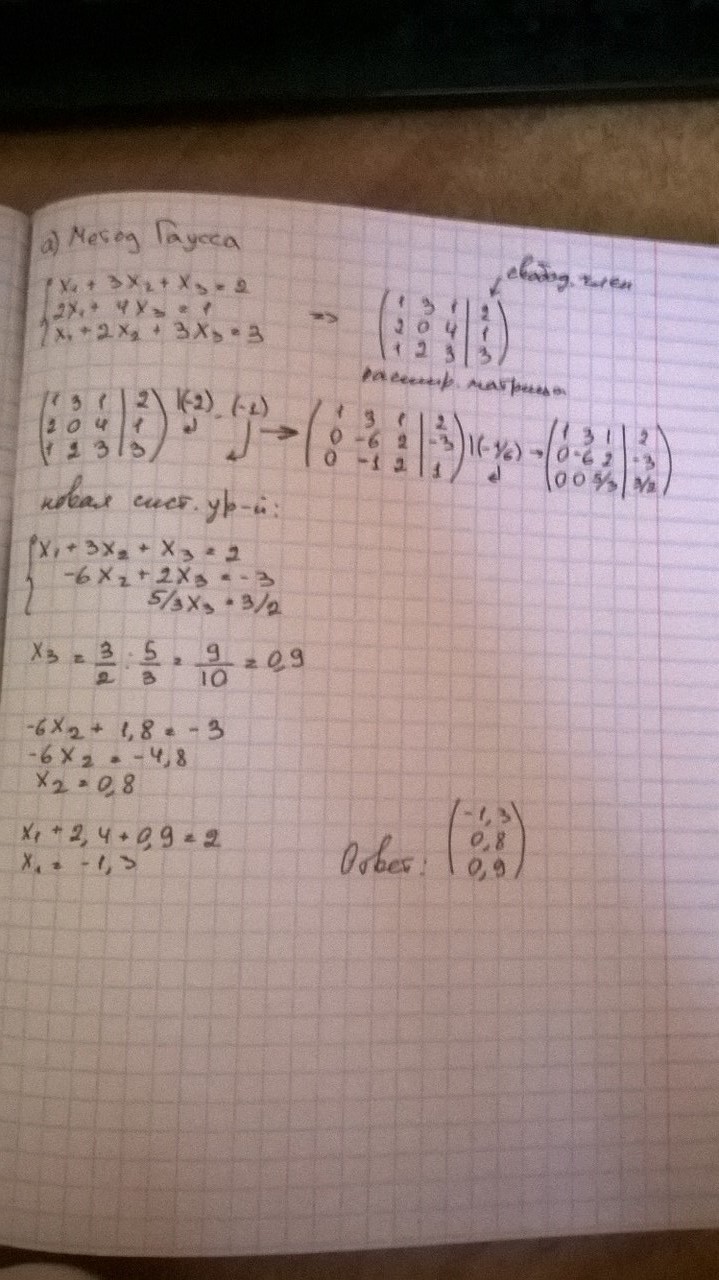 а) Метод Гаусса
свобод. член
{ x₁ + 3x₂ + x₃ = 2
2x₁ + 4x₃ = 1
x₁ + 2x₂ + 3x₃ = 3
=> ( 1 3 1 | 2
2 0 4 | 1
1 2 3 | 3 )
расшир. матрица
( 1 3 1 | 2
2 0 4 | 1
1 2 3 | 3 ) |(-2) (-1)
→ ( 1 3 1 | 2
0 -6 2 | -3
0 -1 2 | 1 ) |(-1/6)
→ ( 1 3 1 | 2
0 -6 2 | -3
0 0 5/3 | 3/2 )
новая сист. ур-й:
{ x₁ + 3x₂ + x₃ = 2
-6x₂ + 2x₃ = -3
5/3x₃ = 3/2
x₃ = 3/2 : 5/3 = 9/10 = 0,9
-6x₂ + 1,8 = -3
-6x₂ = -4,8
x₂ = 0,8
x₁ + 2,4 + 0,9 = 2
x₁ = -1,3
Ответ: ( -1,3
0,8
0,9 )